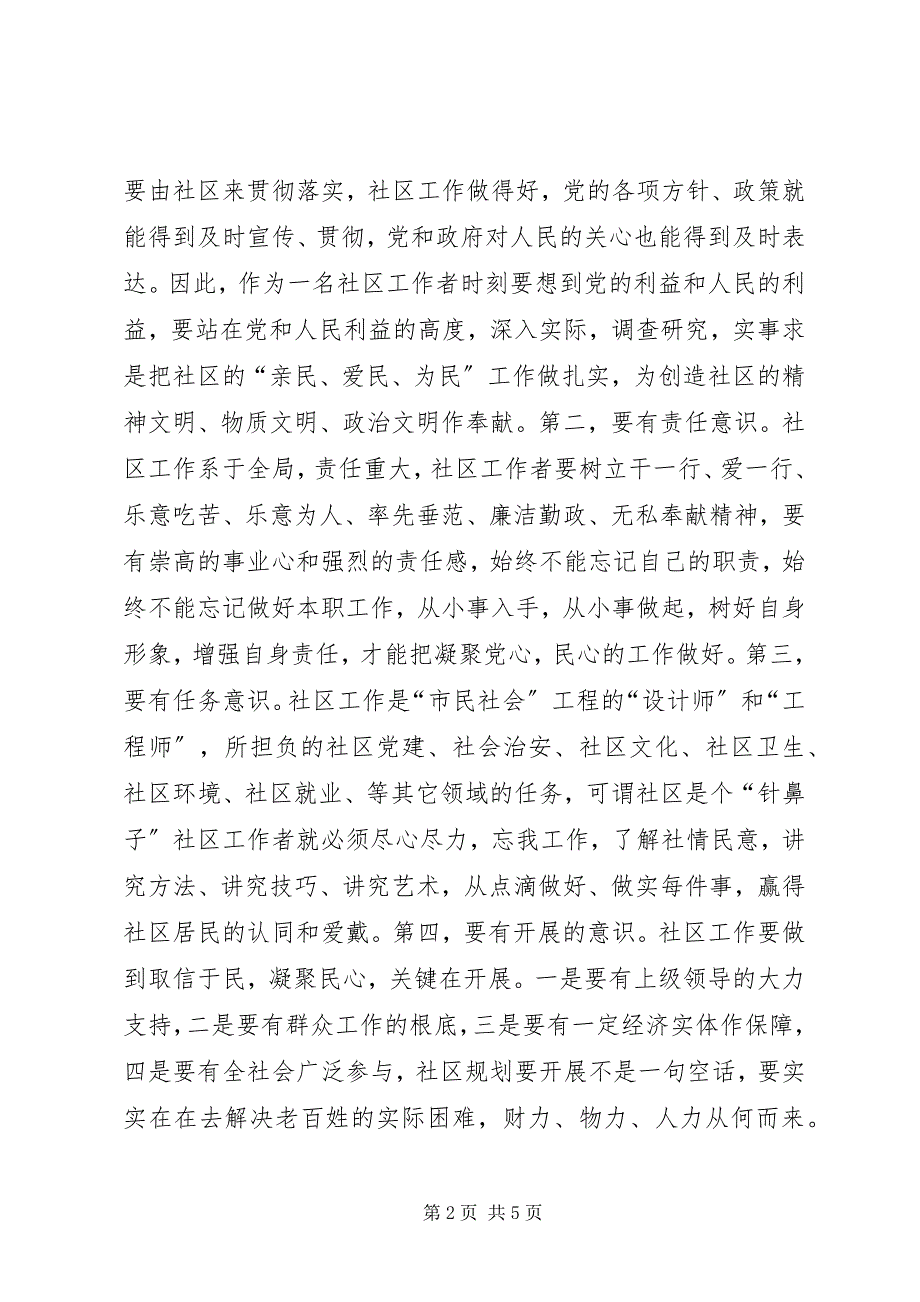 要由社区来贯彻落实，社区工作做得好，党的各项方针、政策就
能得到及时宣传、贯彻，党和政府对人民的关心也能得到及时表
达。因此，作为一名社区工作者时刻要想到党的利益和人民的利
益，要站在党和人民利益的高度，深入实际，调查研究，实事求
是把社区的“亲民、爱民、为民〞工作做扎实，为创造社区的精
神文明、物质文明、政治文明作奉献。第二，要有责任意识。社
区工作系于全局，责任重大，社区工作者要树立干一行、爱一行、
乐意吃苦、乐意为人、率先垂范、廉洁勤政、无私奉献精神，要
有崇高的事业心和强烈的责任感，始终不能忘记自己的职责，始
终不能忘记做好本职工作，从小事入手，从小事做起，树好自身
形象，增强自身责任，才能把凝聚党心，民心的工作做好。第三，
要有任务意识。社区工作是“市民社会〞工程的“设计师〞和“工
程师〞，所担负的社区党建、社会治安、社区文化、社区卫生、
社区环境、社区就业、等其它领域的任务，可谓社区是个“针鼻
子〞社区工作者就必须尽心尽力，忘我工作，了解社情民意，讲
究方法、讲究技巧、讲究艺术，从点滴做好、做实每件事，赢得
社区居民的认同和爱戴。第四，要有开展的意识。社区工作要做
到取信于民，凝聚民心，关键在开展。一是要有上级领导的大力
支持，二是要有群众工作的根底，三是要有一定经济实体作保障，
四是要有全社会广泛参与，社区规划要开展不是一句空话，要实
实在在去解决老百姓的实际困难，财力、物力、人力从何而来。
第 2 页 共 5 页